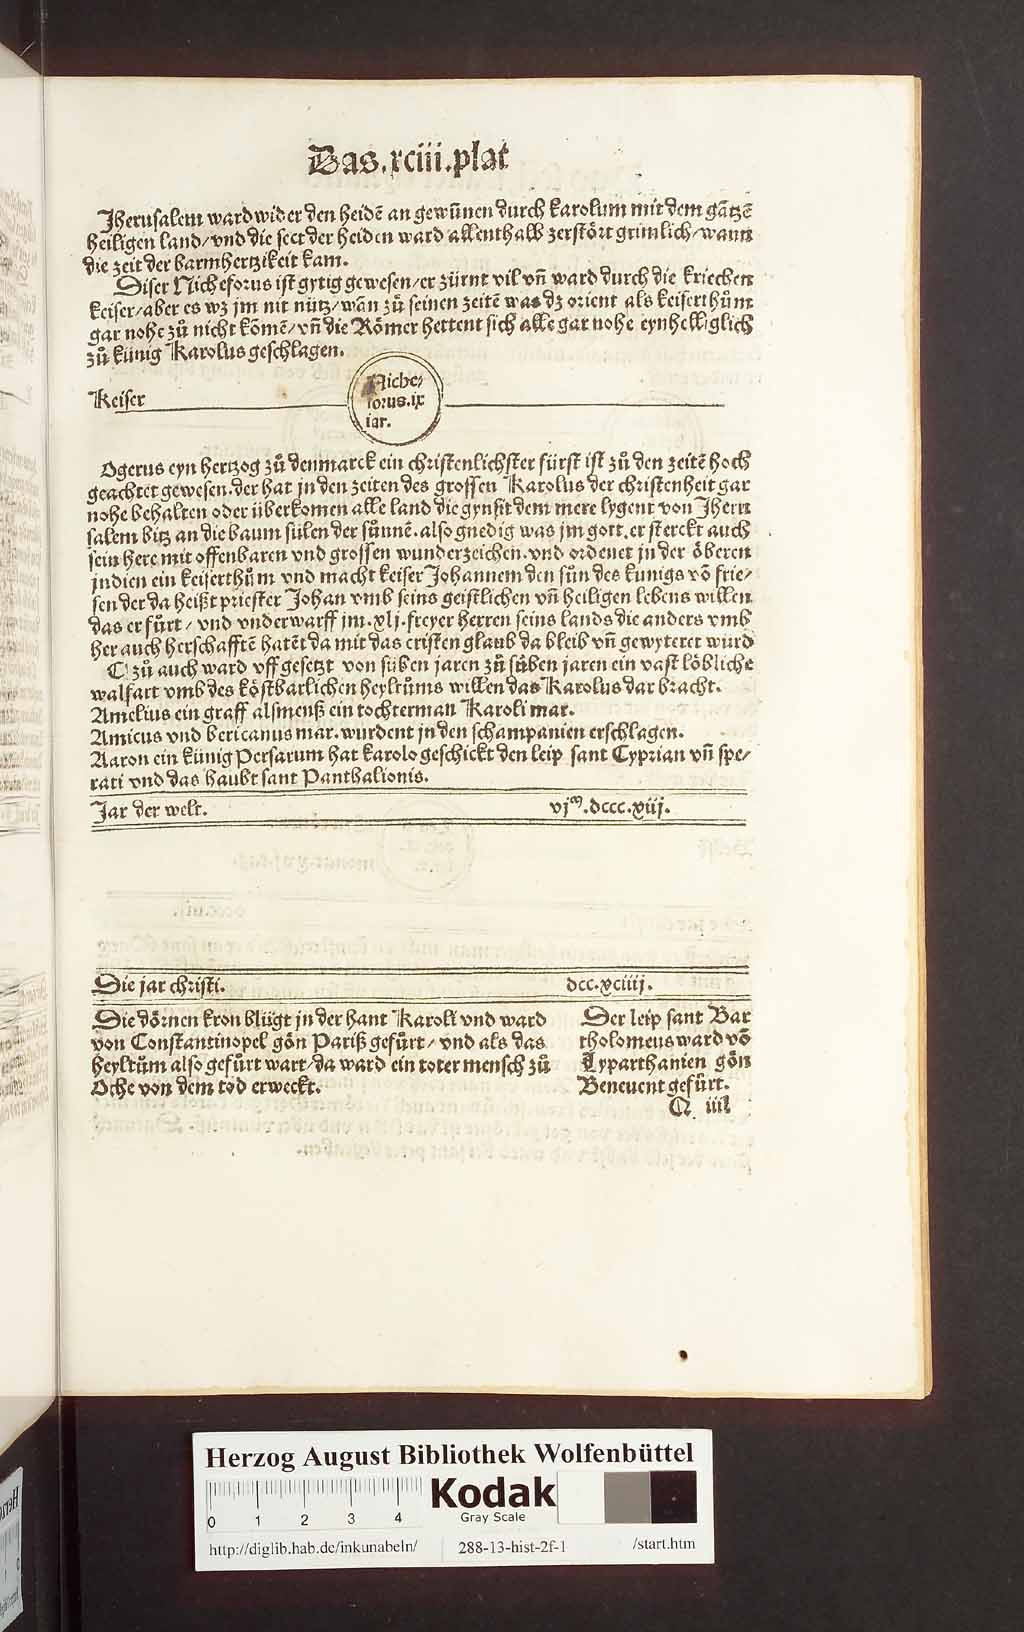 Das.xciii.plat
Jherusalem ward wider den heidē an gewūnen durch karolum mit dem gātzē
heiligen land/vnd die sect der heiden ward allenthalb zerstört grimlich/wann
die zeit der barmhertzikeit kam.
Diser Nicheforus ist gytig gewesen/er zürnt vil vn̄ ward durch die kriechen
keiser/aber es wz jm nit nütz/wān zů seinen zeitē was dz orient als keiserthům
gar nohe zů nicht kōmē/vn̄ die Römer hettent sich alle gar nohe eynhelliglich
zů künig Karolus geschlagen.
Keiser
Niche/
forus.ix
iar.
Ogerus eyn hertzog zů denmarck ein christenlichster fürst ist zů den zeitē hoch
geachtet gewesen.der hat jn den zeiten des grossen Karolus der christenheit gar
nohe behalten oder überkomen alle land die gynsit dem mere lygent von Jheru
salem bitz an die baum sülen der sůnnē.also gnedig was jm gott.er sterckt auch
sein here mit offenbaren vnd grossen wunderzeichen.vnd ordenet jn der öberen
jndien ein keiserthům vnd macht keiser Johannem den sůn des kunigs vō frie/
sen der da heißt priester Johan vmb seins geistlichen vn̄ heiligen lebens willen
das er fůrt/vnd vnderwarff jm.xlj.freyer herren seins lands die anders vmb
her auch herschafftē hatēt da mit das cristen glaub da bleib vn̄ gewyteret würd
C zů auch ward vff gesetzt von süben jaren zů süben jaren ein vast löbliche
walfart vmb des köstbarlichen heyltůms willen das Karolus dar bracht.
Amelius ein graff alsmenß ein tochterman Karoli mar.
Amicus vnd bericanus mar.wurdent jn den schampanien erschlagen.
Aaron ein künig Persarum hat karolo geschickt den leip sant Cyprian vn̄ spe/
rati vnd das haubt sant Panthalionis.
Jar der welt. vjᵐ.dccc.xiij.
Die jar christi. dcc.xciiij.
Die dörnen kron blügt jn der hant Karoli vnd ward
von Constantinopel gön Pariß gefůrt/vnd als das
heyltům also gefůrt wart/da ward ein toter mensch zů
Oche von dem tod erweckt.
Der leip sant Bar
tholomeus ward vō
Lyparthanien gön
Beneuent gefůrt.
Q iiij
Herzog August Bibliothek Wolfenbüttel
0 1 2 3 4
Kodak
Gray Scale
http://diglib.hab.de/inkunabeln/ 288-13-hist-2f-1 /start.htm